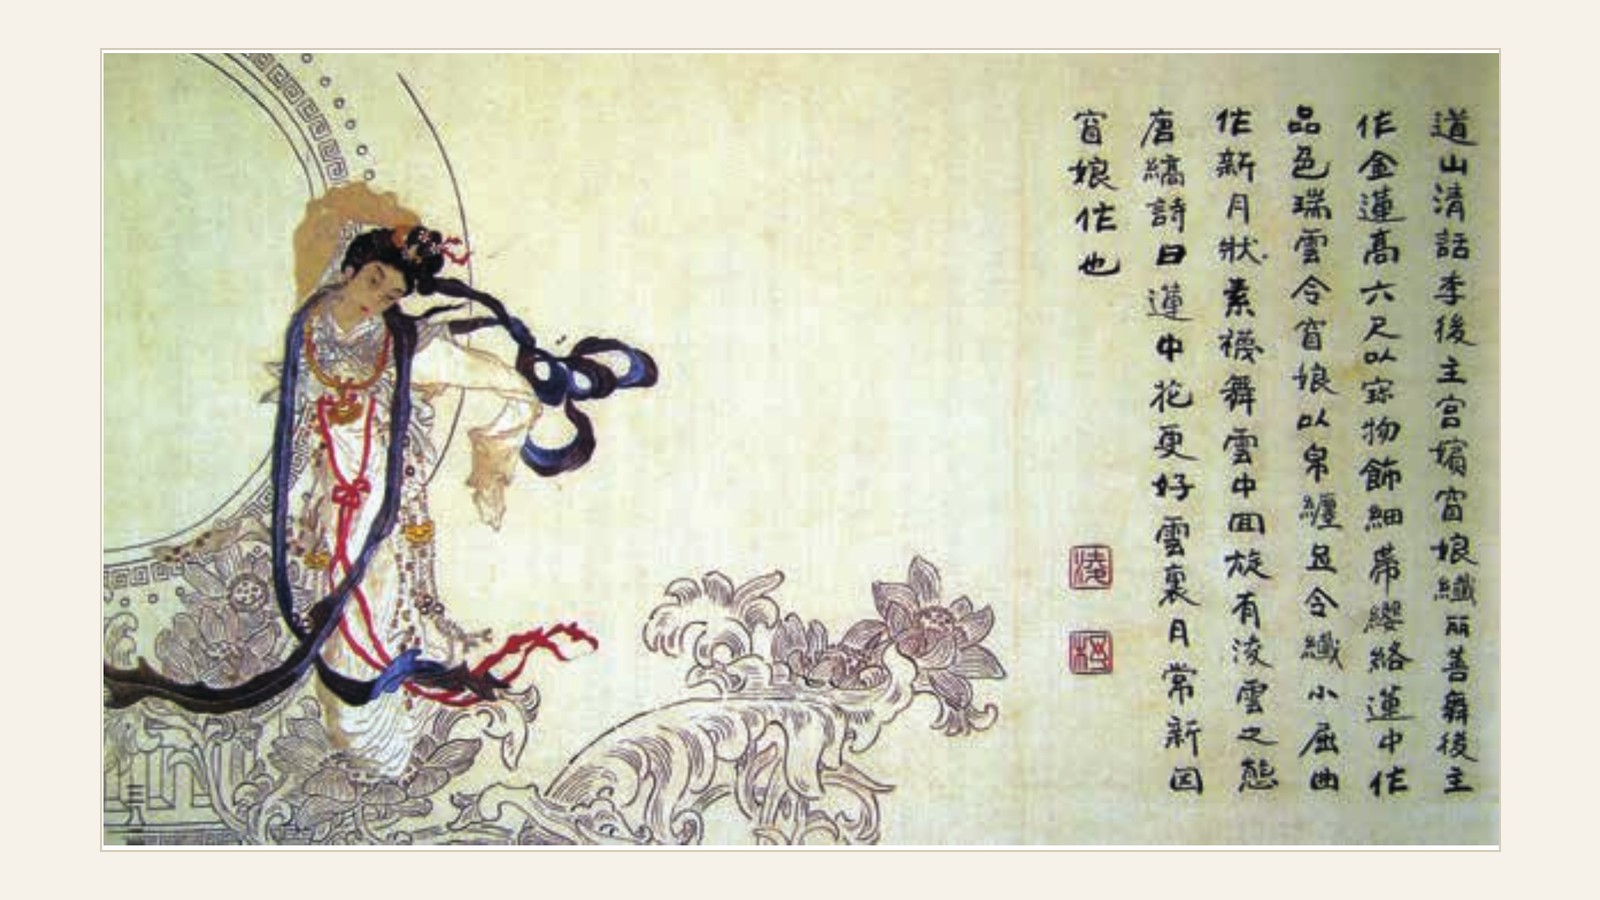 道山清話李後主宮嬪窅娘纖丽善舞後主
作金蓮高六尺以寳物飾細帶纓絡蓮中作
品色瑞雲令窅娘以帛纏足令纖小屈曲
作新月狀素襪舞雲中囬旋有淩雲之態
唐縞詩曰蓮中花更好雲裏月常新因
窅娘作也